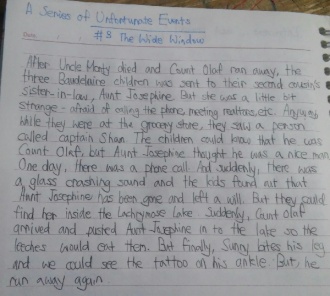 A Series of Unfortunate Events
Date
#3 The Wide Window
After Uncle Monty died and Count Olaf ran away, the
three Baudelaire children was sent to their second cousin's
sister-in-law, Aunt Josephine. But she was a little bit
strange - afraid of calling the phone, meeting realtors, etc. Anyways
while they were at the grocery store, they saw a person
called captain Sham. The children could know that he was
Count Olaf, but Aunt Josephine thought he was a nice man.
One day, there was a phone call. And suddenly, there was
a glass crashing sound and the kids found out that
Aunt Josephine has been gone and left a will. But they could
find her inside the Lachrymose Lake. Suddenly, Count Olaf
arrived and pushed Aunt Josephine in to the lake so the
leeches would eat them. But finally, Sunny bites his leg
and we could see the tattoo on his ankle. But, he
ran away again.